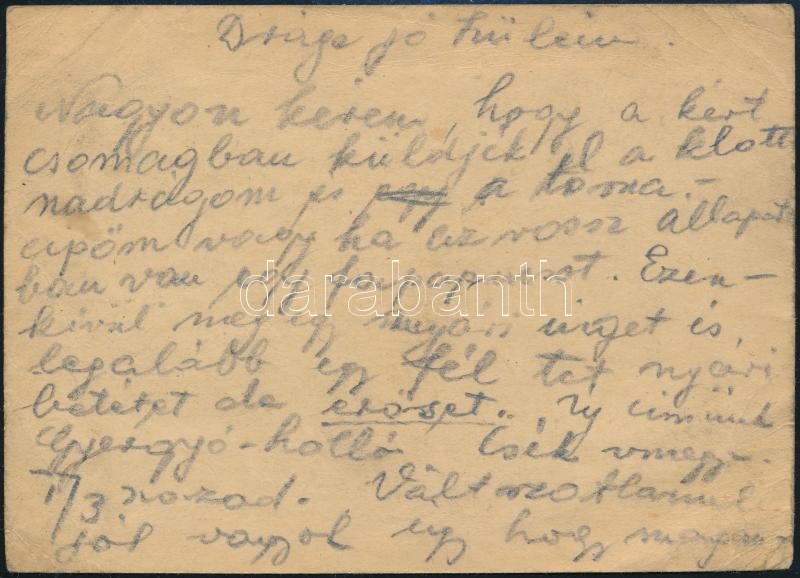 Drága jó Szüleim.
Nagyon kérem, hogy a kért
csomagban küldjék el a klott
nadrágom és egy a torna-
cipőm vagy ha az rossz állapot-
ban van egy fapapucsot. Ezen-
kívül még egy nyári inget és
legalább egy fél tet nyári
betétet de erőset. Uj címünk
Gyergyó-holló Csék vmegye
II/3 század. Változatlanul
jól vagyok ugy hogy
darabanth